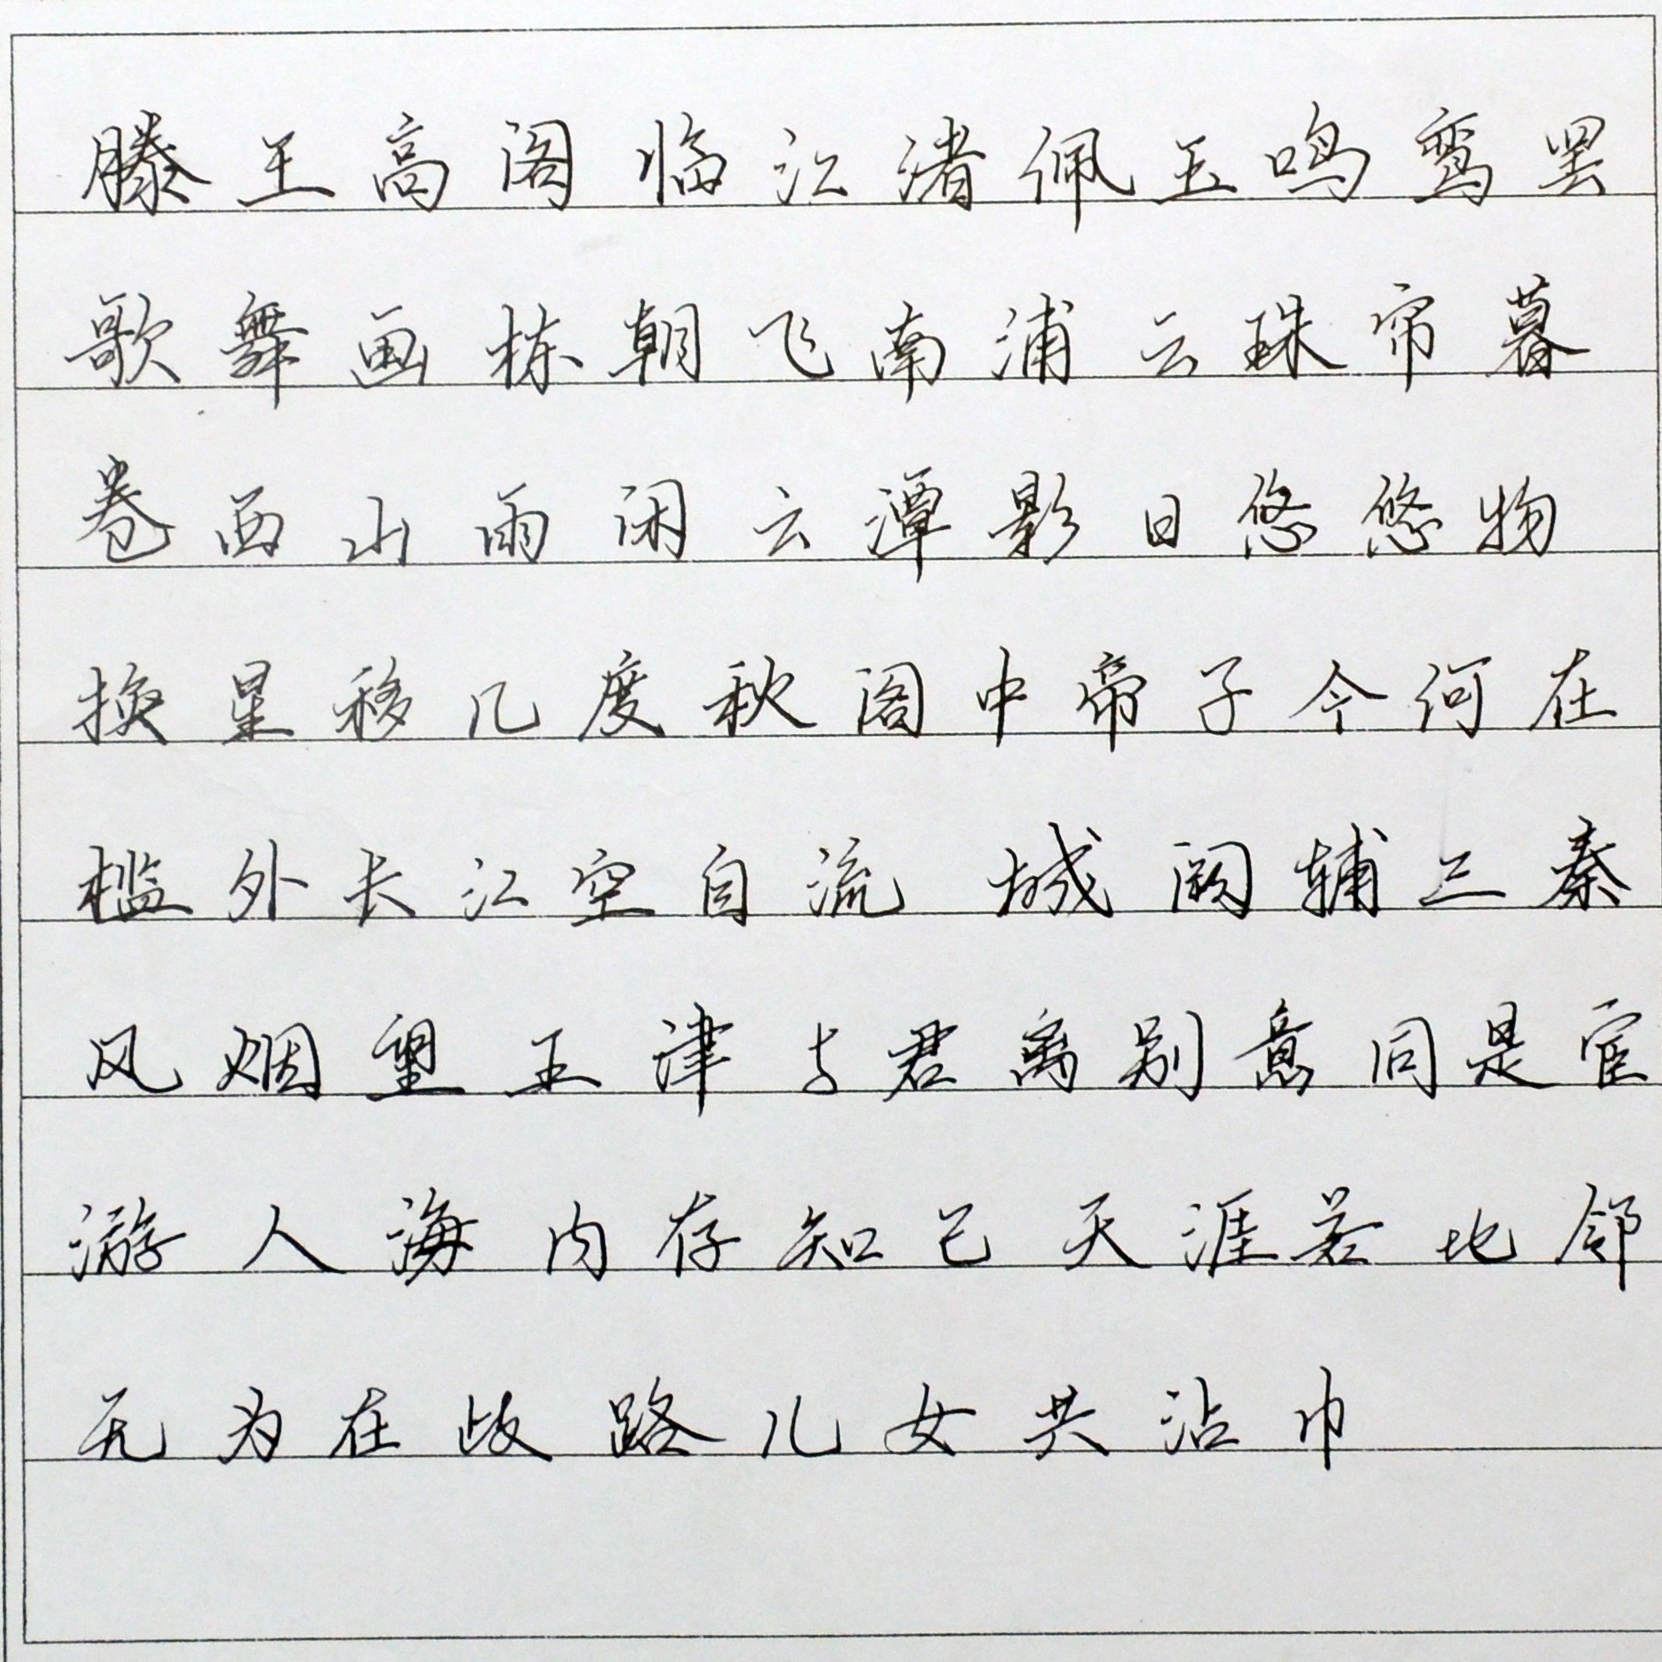 滕王高阁临江渚佩玉鸣鸾罢
歌舞画栋朝飞南浦云珠帘暮
卷西山雨闲云潭影日悠悠物
换星移几度秋阁中帝子今何在
槛外长江空自流 城阙辅三秦
风烟望五津与君离别意同是宦
游人海内存知己天涯若比邻
无为在歧路儿女共沾巾